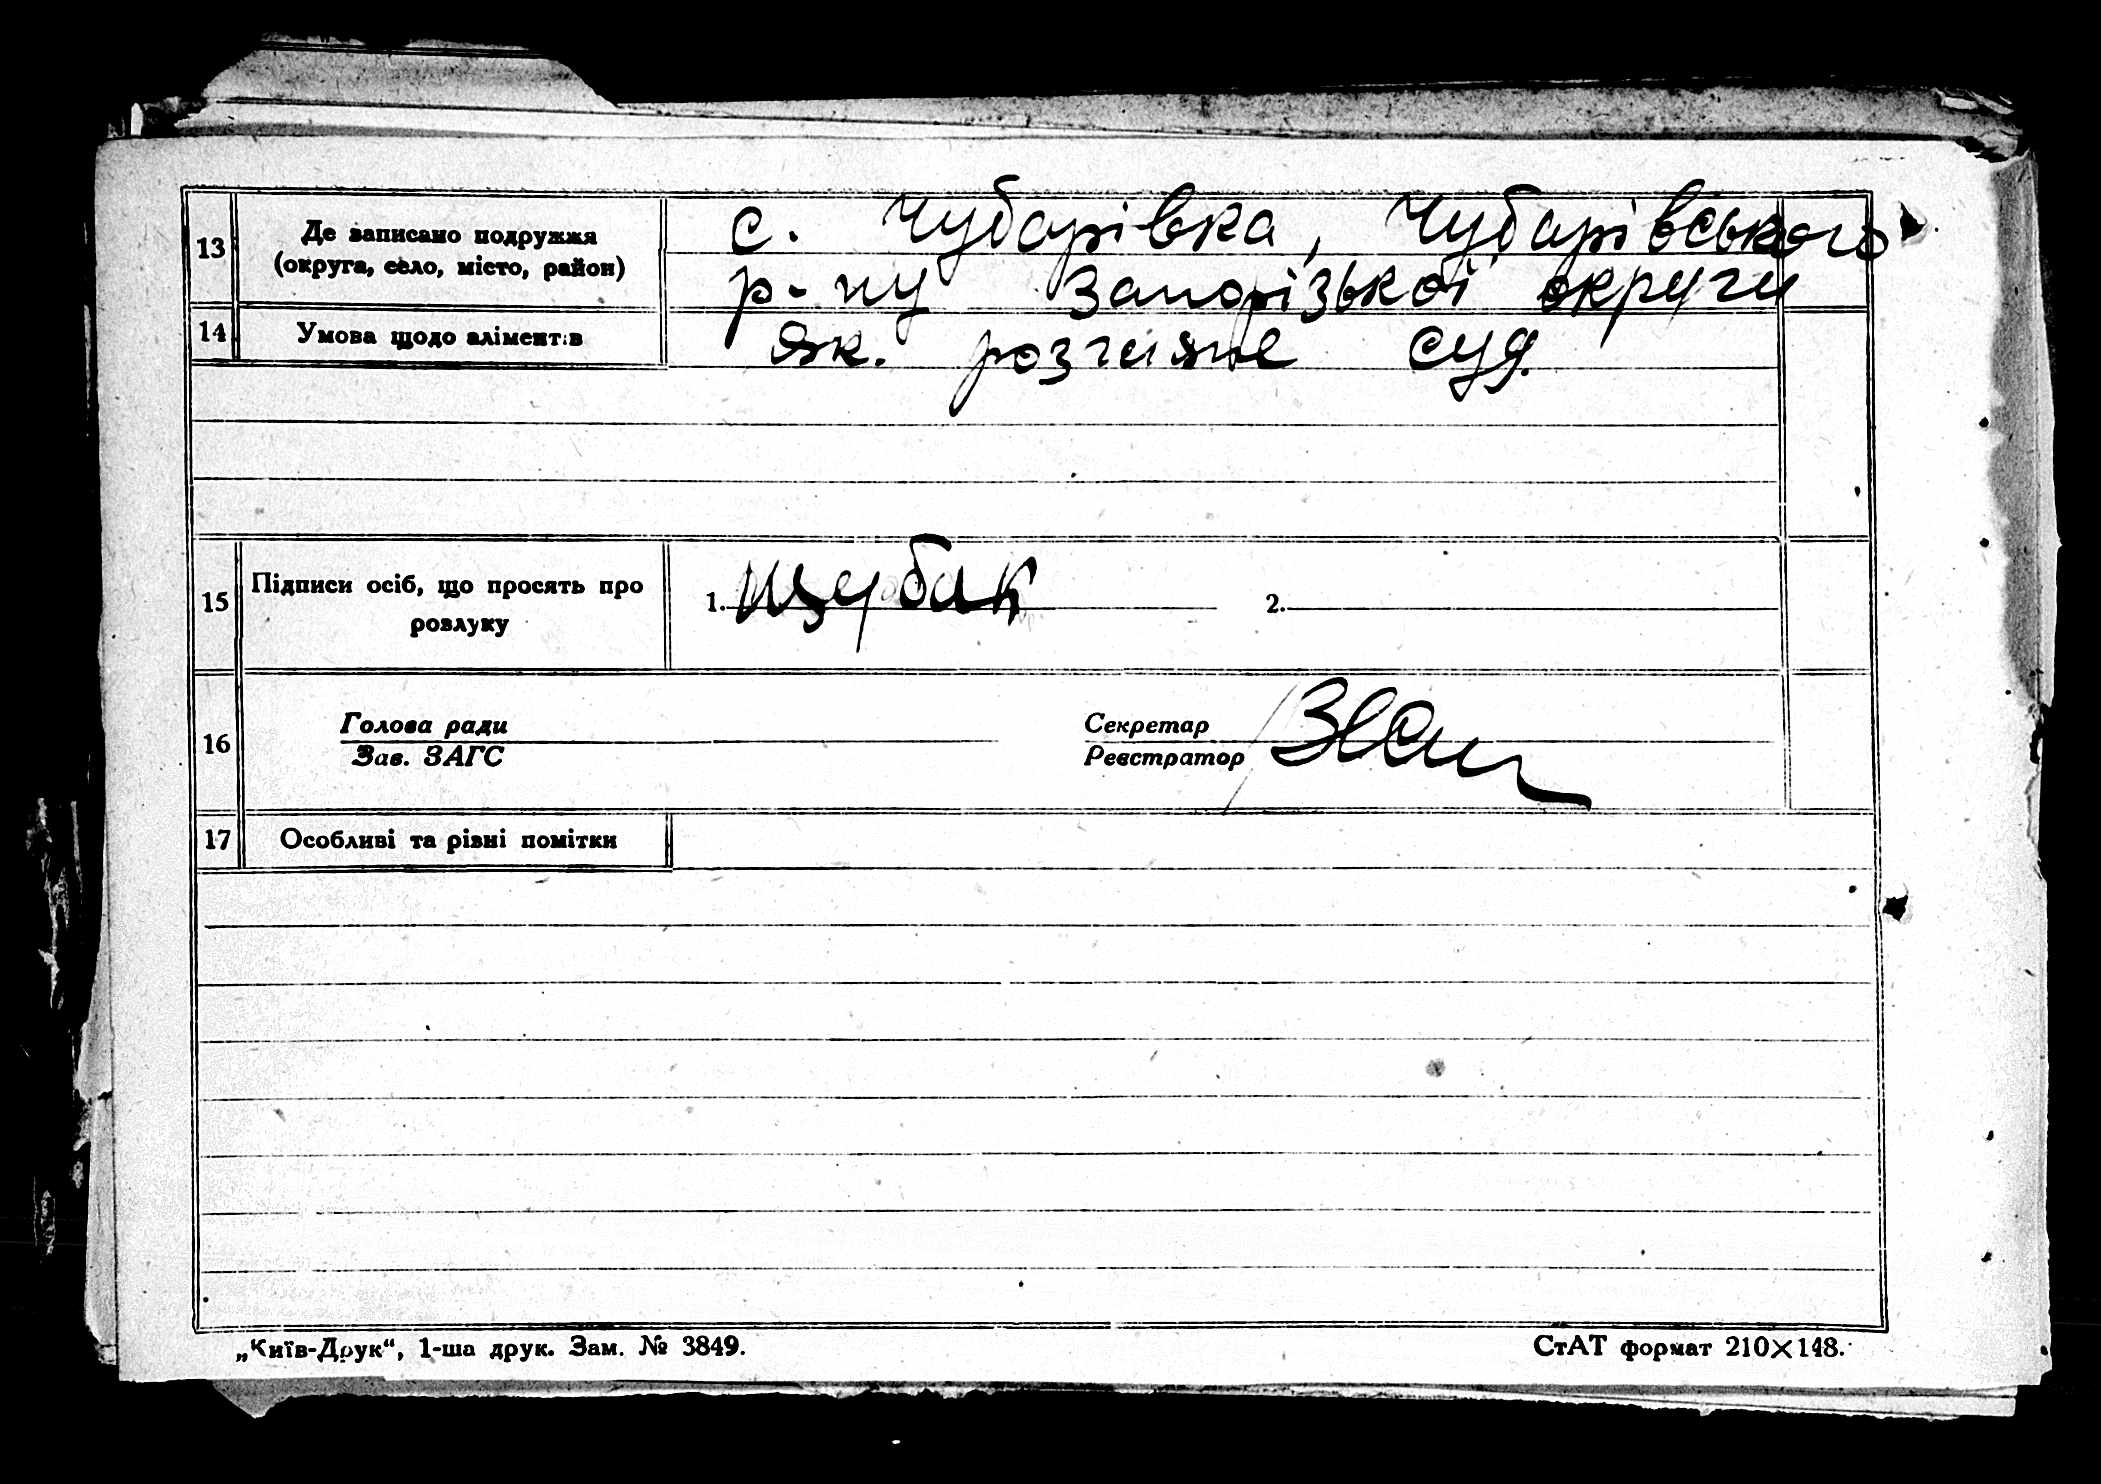 13 Де записано подружжя с. Чубарівка, Чубарівського
(округа, село, місто, район) р-ну Запорізької округи
14 Умова щодо аліментів як. розгляне суд.
15 Підписи осіб, що просять про 1. Щербак 2.
розлуку
Голова ради Секретар
16
Зав. ЗАГС Реєстратор
17 Особливі та різні помітки
„Київ-Друк“, 1-ша друк. Зам. № 3849. СтАТ формат 210×148.